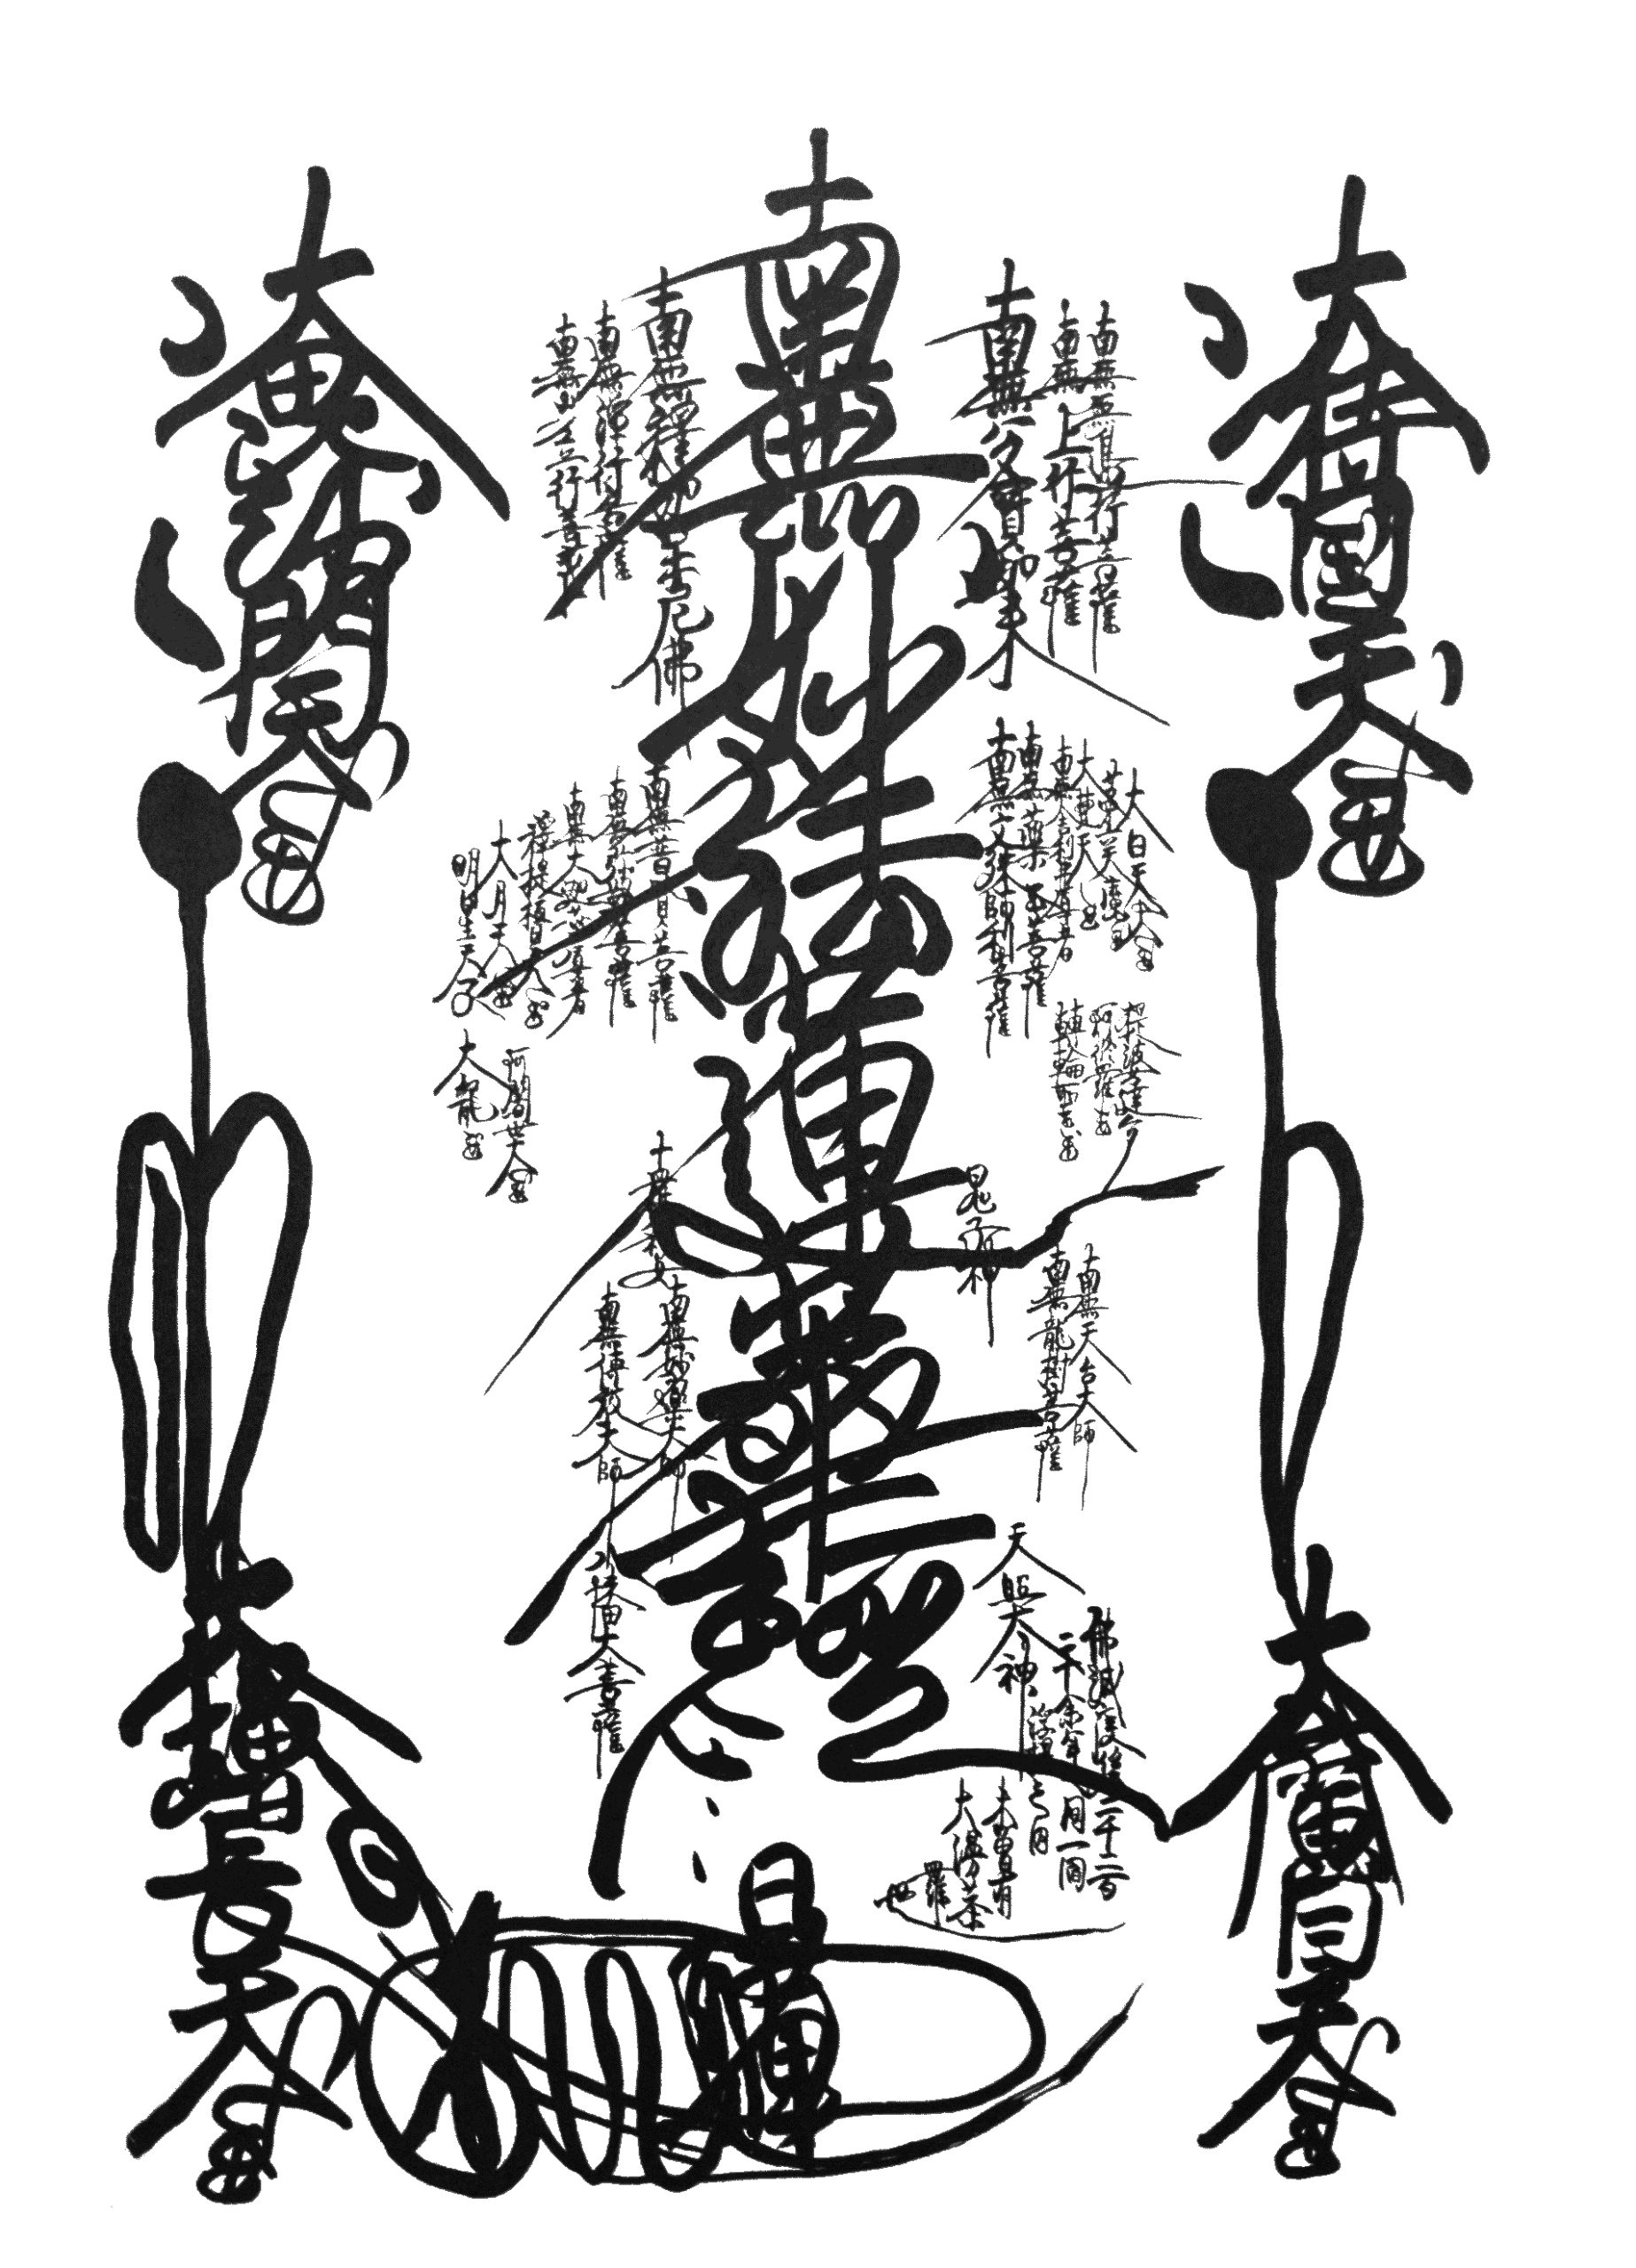 大持国天王
大廣目天王
南無無邊行菩薩
南無上行菩薩
南無多寳如来
南無妙法蓮華経
日蓮
南無釋迦牟尼佛
南無淨行菩薩
南無安立行菩薩
大日天王
第六天魔王
大梵天王
南無舎利弗尊者
南無藥王菩薩
南無文殊師利菩薩
南無普賢菩薩
南無弥勒菩薩
南無大迦葉尊者
釋提桓因大王
大月天王
明星天子
提婆達多
阿修羅王
轉輪聖王
阿闍世大王
大龍王
鬼子母神
十羅刹女
南無天台大師
南無龍樹菩薩
南無妙樂大師
南無傳教大師
天照大神
八幡大菩薩
佛滅度後二千二百
二十余年之間
一閻浮提之内
未曽有
大漫荼
羅也
大毗沙門天王
大増長天王